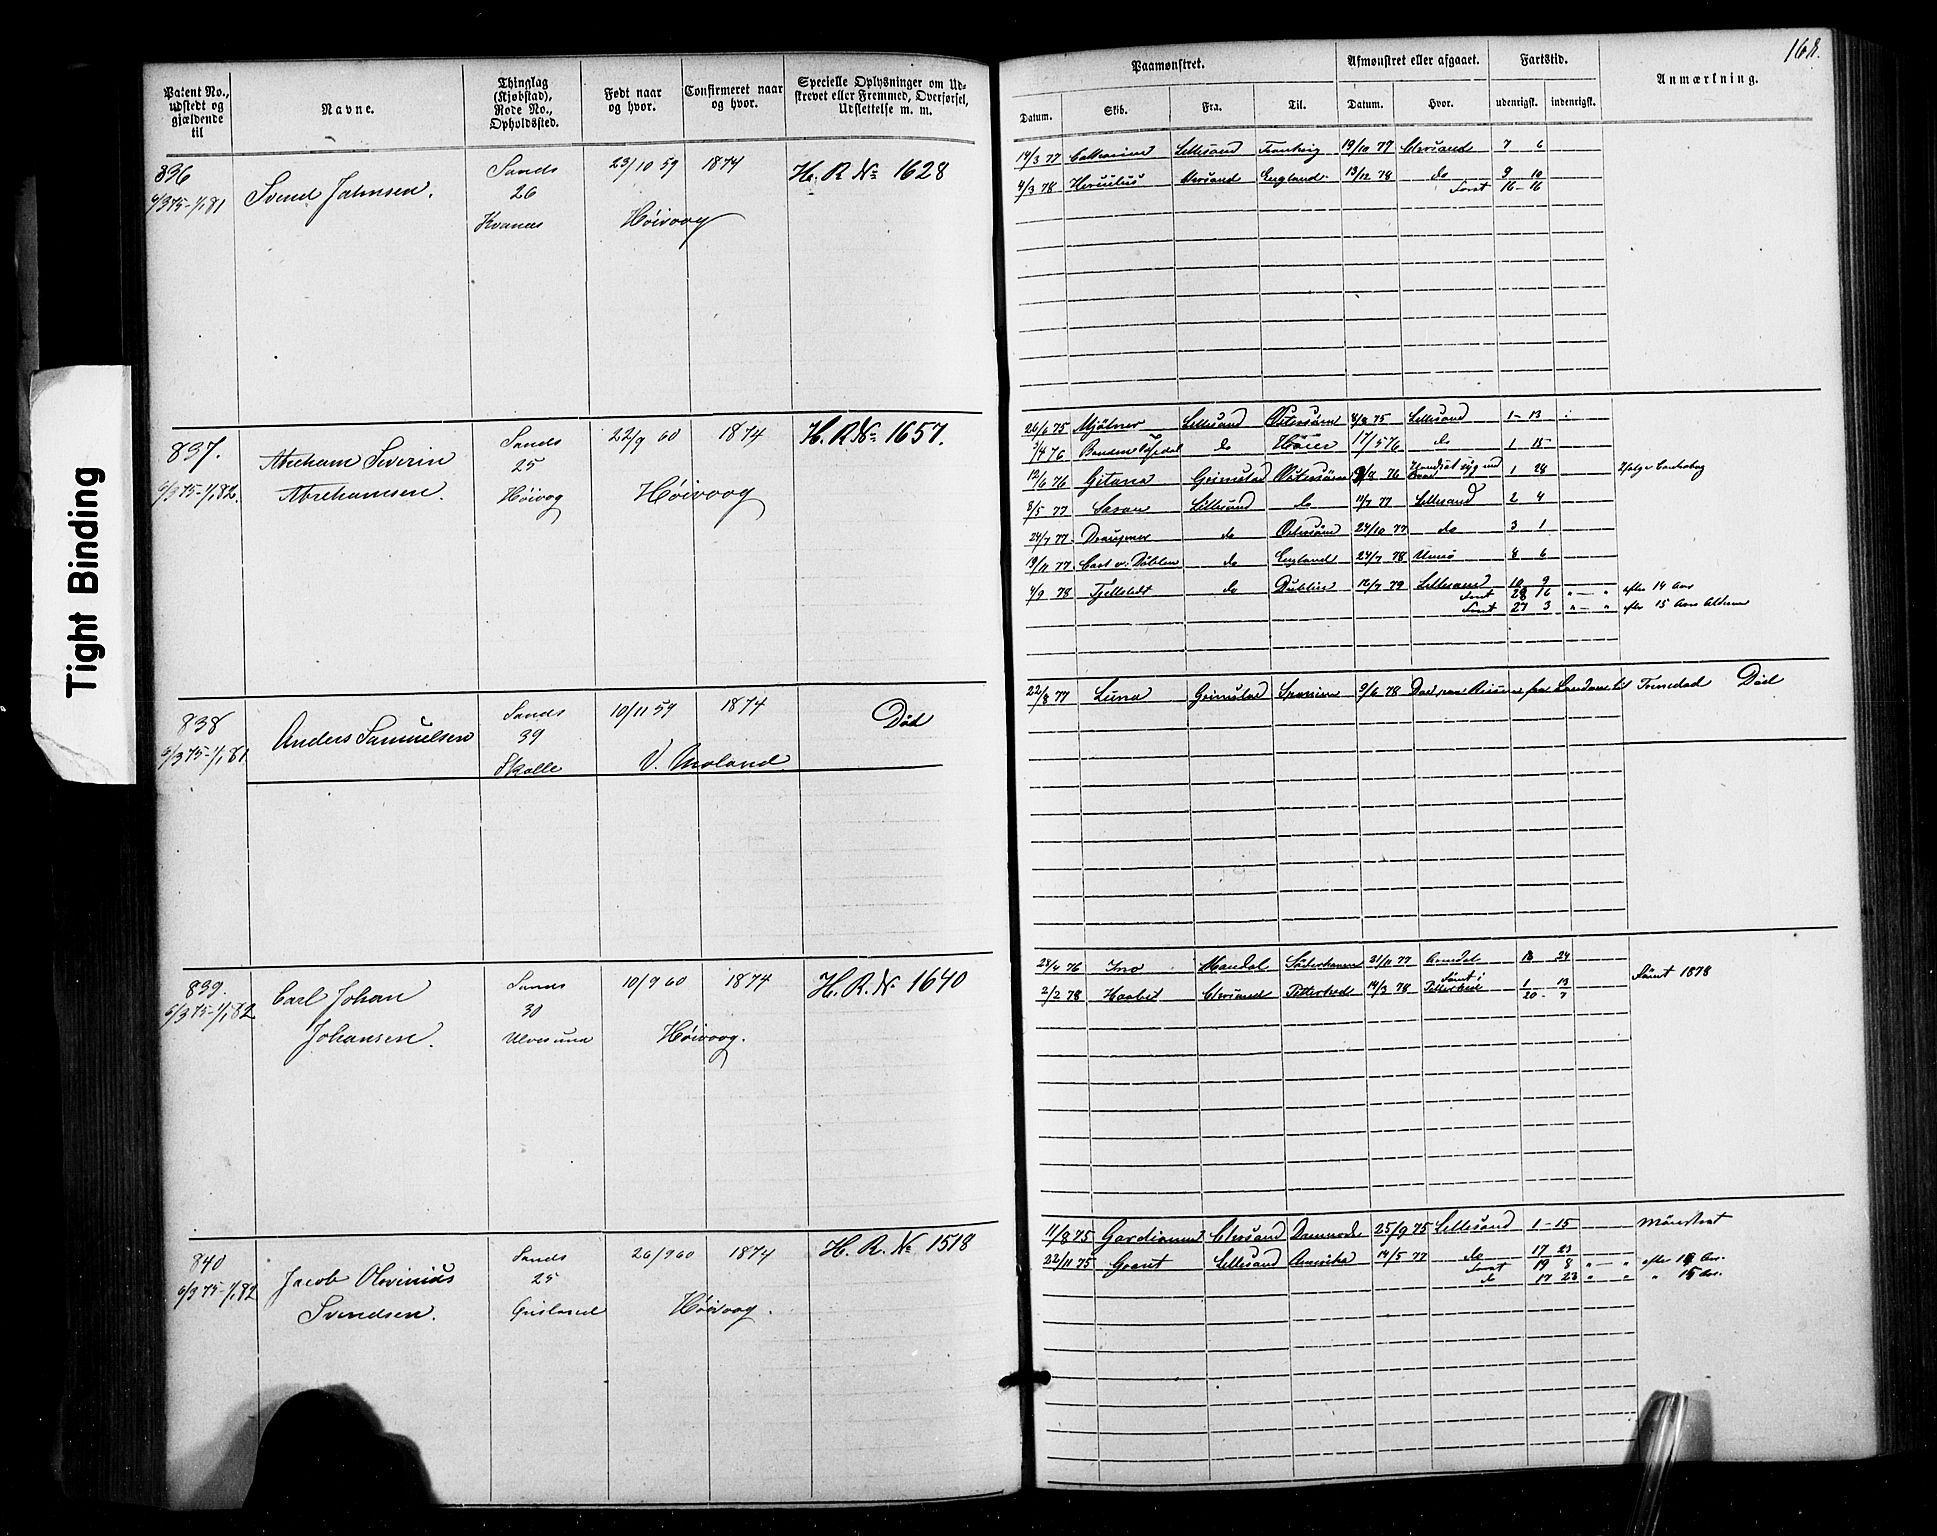 168.
Tight Binding
Patent No., udstedt og gjældende til
Navne.
Thinglag (Kjøbstad), Rode No., Opholdssted.
Født naar og hvor.
Confirmeret naar og hvor.
Specielle Oplysninger om Udskrevet eller Fremmed, Overførsel, Udslettelse m. m.
Paamønstret.
Afmønstret eller afgaaet.
Fartstid.
Anmærkning.
Datum.
Skib.
Fra.
Til.
Datum.
Hvor.
udenrigsk.
indenrigsk.
836
6/3 75-1/1 81
Svend Jahnsen.
Sands
26
Kvanes
23/10 59
1874
Høivaag
H. R. No 1628
14/3 77 Cathrine Lillesand 19/10 77 Chrsand 7 6
4/3 78 Herculus Chrsand England 13/12 78 do 9 10
16-16
837.
6/3 75-1/1 82.
Abraham Severin
Abrahamsen.
Sands
25
Høivog
22/9 60
1874
Høivaag
H. R. No 1657.
26/6 75 Mjølner Lillesand Østersøen 4/8 75 Lillesand 1-13
3/4 76 do 17/5 76 do 1 15
12/6 76 Gitana Grimstad Østersøen 9/8 76 1 28
8/5 77 Lillesand do 11/7 77 Lillesand 2 4
24/7 77 Draupner do Østersøen 24/10 77 do 3 1
19/11 77 do England 24/7 78 Umeå 8 6
4/9 78 Fjellstedt do Dublin 12/7 79 Lillesand 10 9
28 16 " - " efter 14 Aar
27 3 " - " efter 15 Aars Alderen
838
6/3 75-1/1 81
Anders Samuelsen
Sands
39
Skalle
10/11 59
1874
V. Moland
Død
22/8 77 Luna Grimstad Spanien 9/6 78 Død paa Reisen fra til Død
839.
6/3 75-1/1 82
Carl Johan
Johansen.
Sands
30
Ulvesund
10/9 60
1874
Høivaag.
H. R. No 1640
28/4 76 Ino Mandal 21/11 77 Arendal 18 24
2/2 78 Haabet Chrsand 14/3 78 1 13
20 7
1878
840
6/3 75-1/1 82
Jacob Olvinius
Svendsen.
Sands
25
Grisland
26/9 60
1874
Høivaag.
H. R. No 1518
11/8 75 Chrsand 25/9 75 Lillesand 1-15 Mønstret
22/11 75 Grant Lillesand Amerika 14/5 77 do 17 23
19 8 " - " efter Aar.
do 17 23 " " " 15 Aar.